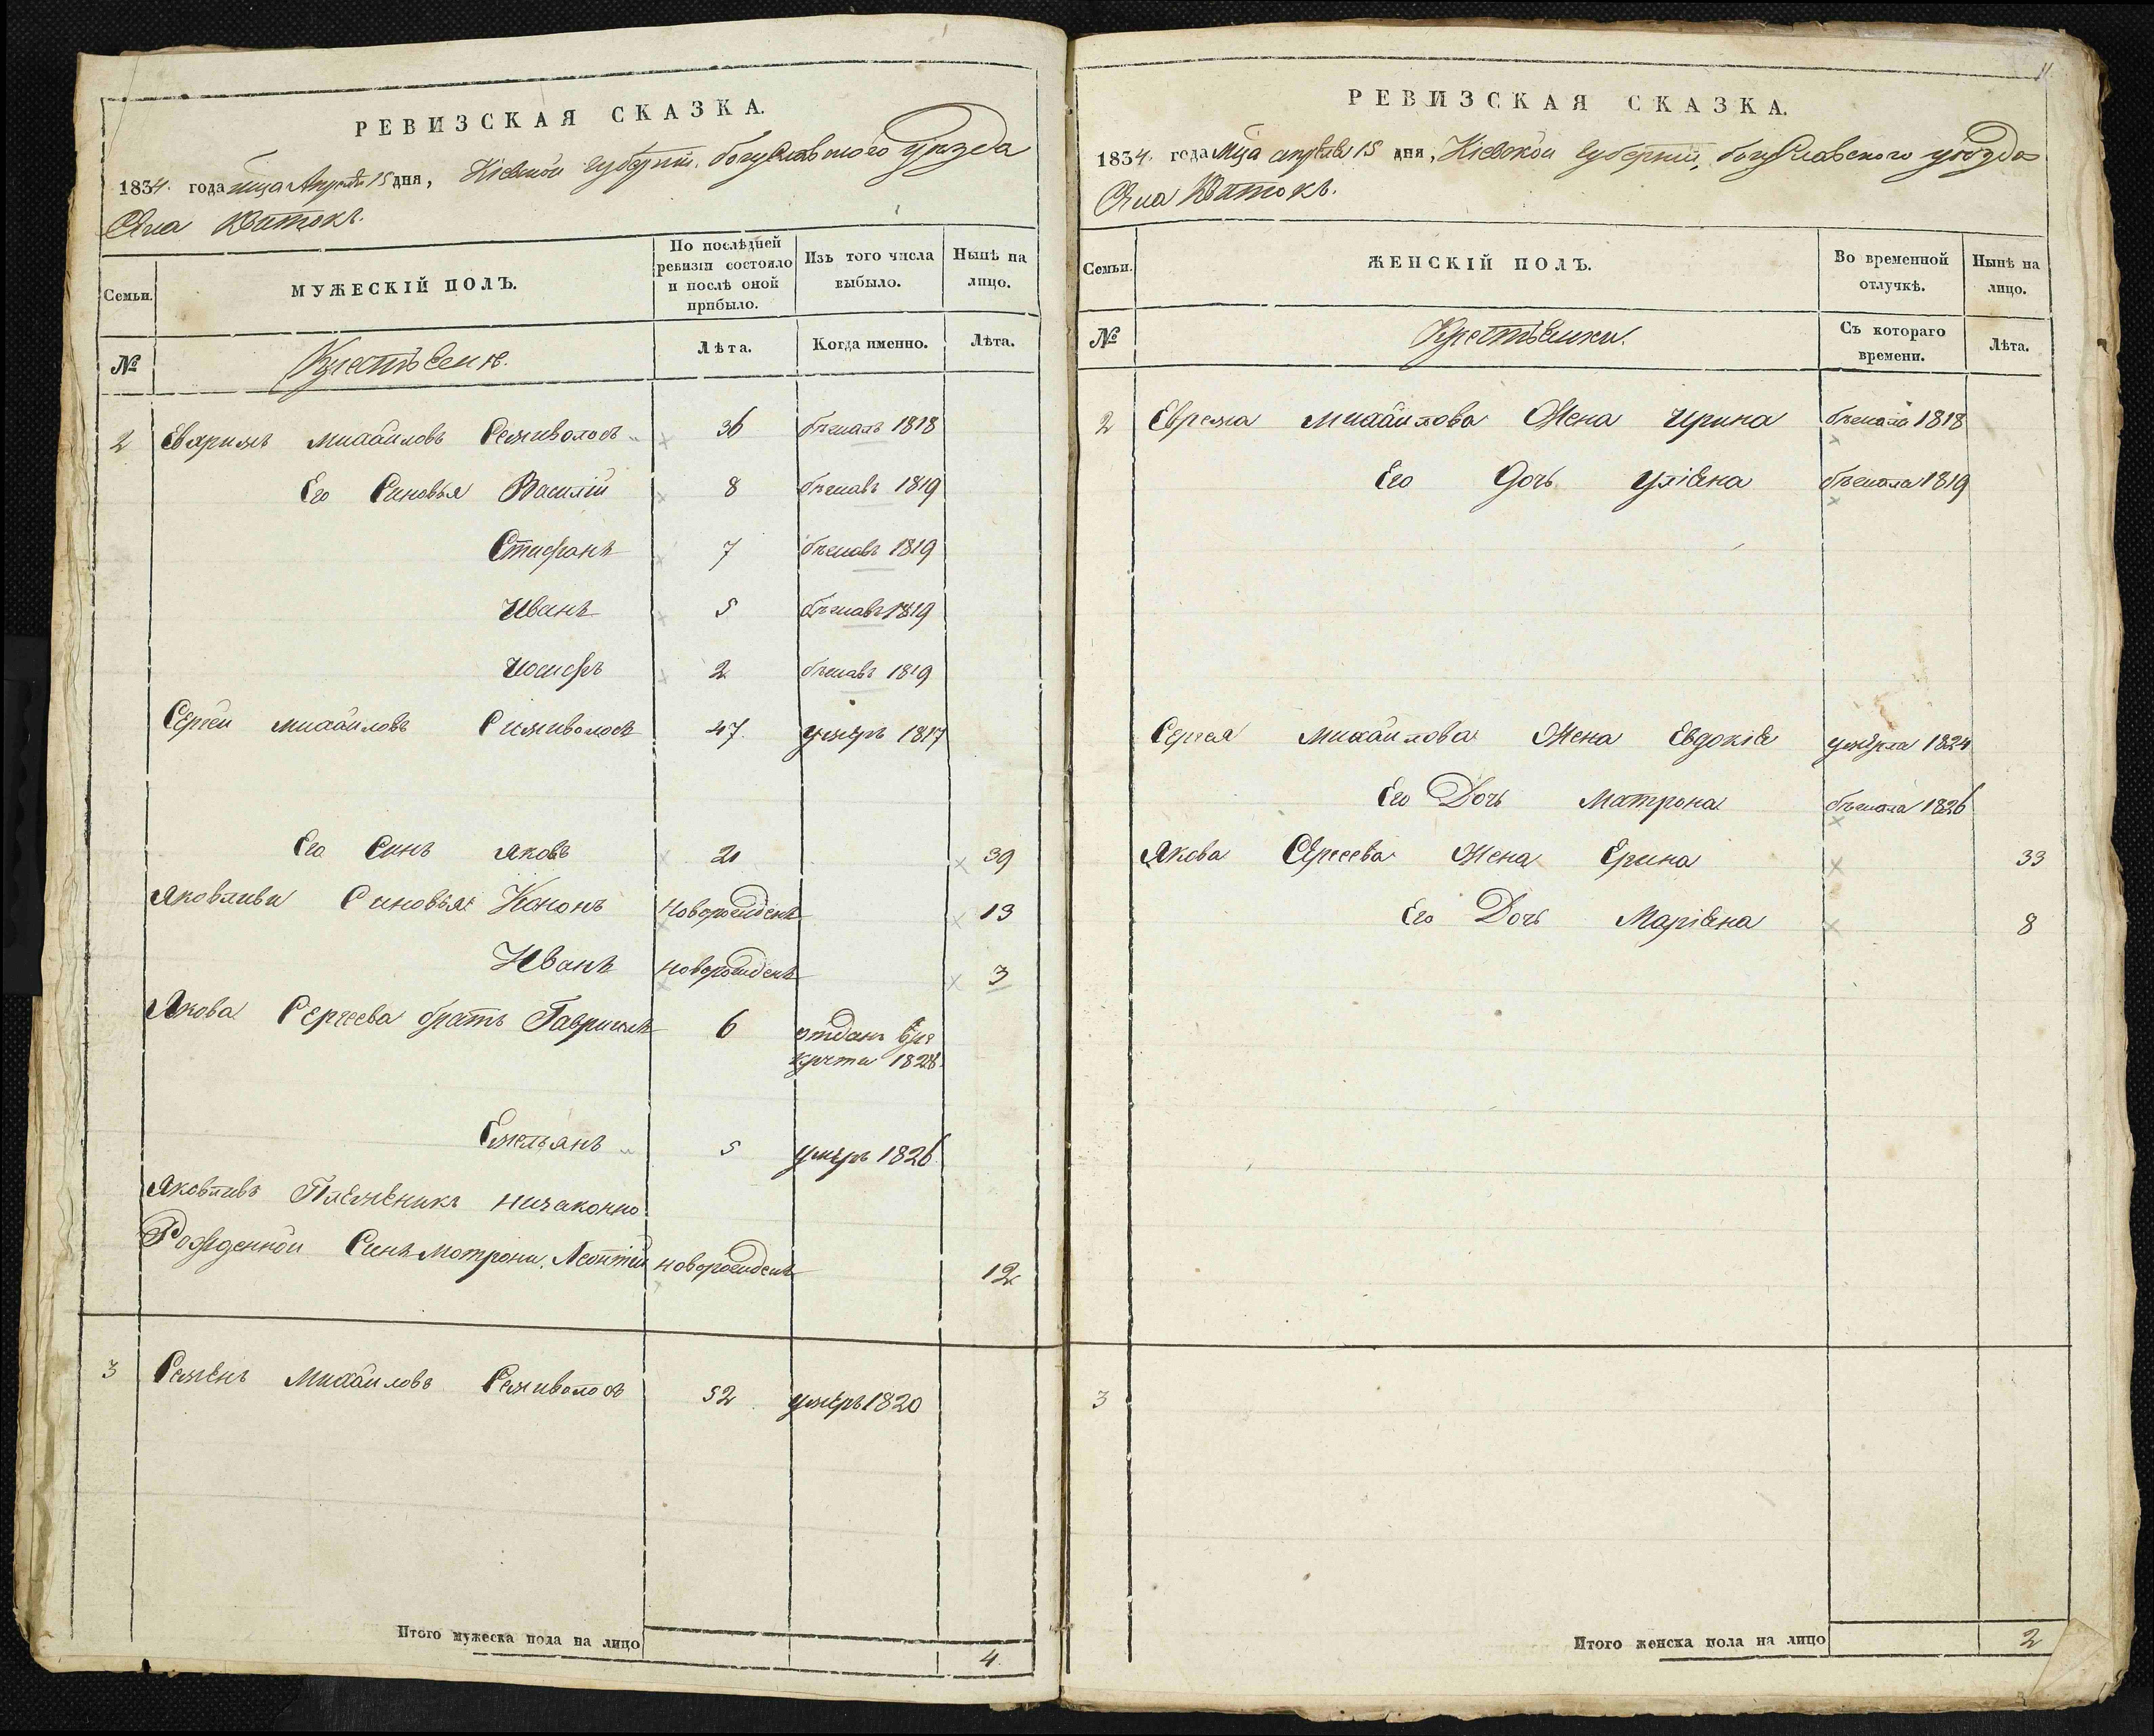 РЕВИЗСКАЯ СКАЗКА.
1834. года мца Апреля 15 дня, Кіевской губерніи, богуславского уезда
Села Квитокъ.
Семьи.
МУЖЕСКІЙ ПОЛЪ.
По послѣдней ревизіи состояло и послѣ оной прибыло.
Изъ того числа выбыло.
Нынѣ на лицо.
№
Лѣта.
Когда именно.
Лѣта.
2 Михайловъ 36 1818
Его Синовья Василій 8 1819
Стифанъ 7 1819
Иванъ 5 1819
Иосифъ 2 1819
Сергей михайловъ 47. умеръ 1817
Его Синъ яковъ 21 39
Яковливи Синовья Кононъ новорожденъ 13
Иванъ новорожденъ 3
Якова Сергеева братъ Гавриилъ 6 отданъ в ре
круты 1828.
Емельянъ 5 умеръ 1826
Яковливъ Племеникъ низаконно
Рожденной Синъ Мотрони, Леонтий новорожденъ 12
3 Семенъ Михайловъ Семиволосъ 52 умеръ 1820
Итого мужеска пола на лицо 4.
11
РЕВИЗСКАЯ СКАЗКА.
1834. года Мца апреля 15 дня, Кіевской губерніи, богуславского уезда
Села Квитокъ.
Семьи.
ЖЕНСКІЙ ПОЛЪ.
Во временной отлучкѣ.
Нынѣ на лицо.
№
Съ котораго времени.
Лѣта.
2 Ефрема михайлова Жена Ирина бежала 1818
Его Дочь Улияна бежала 1819
Сергея Михайлова Жена Евдокія умерла 1824
Его Дочь Матрона бежала 1826
Якова Сергеева Жена Ерина 33
Его Дочь Маріяна 8
3
Итого женска пола на лицо 2